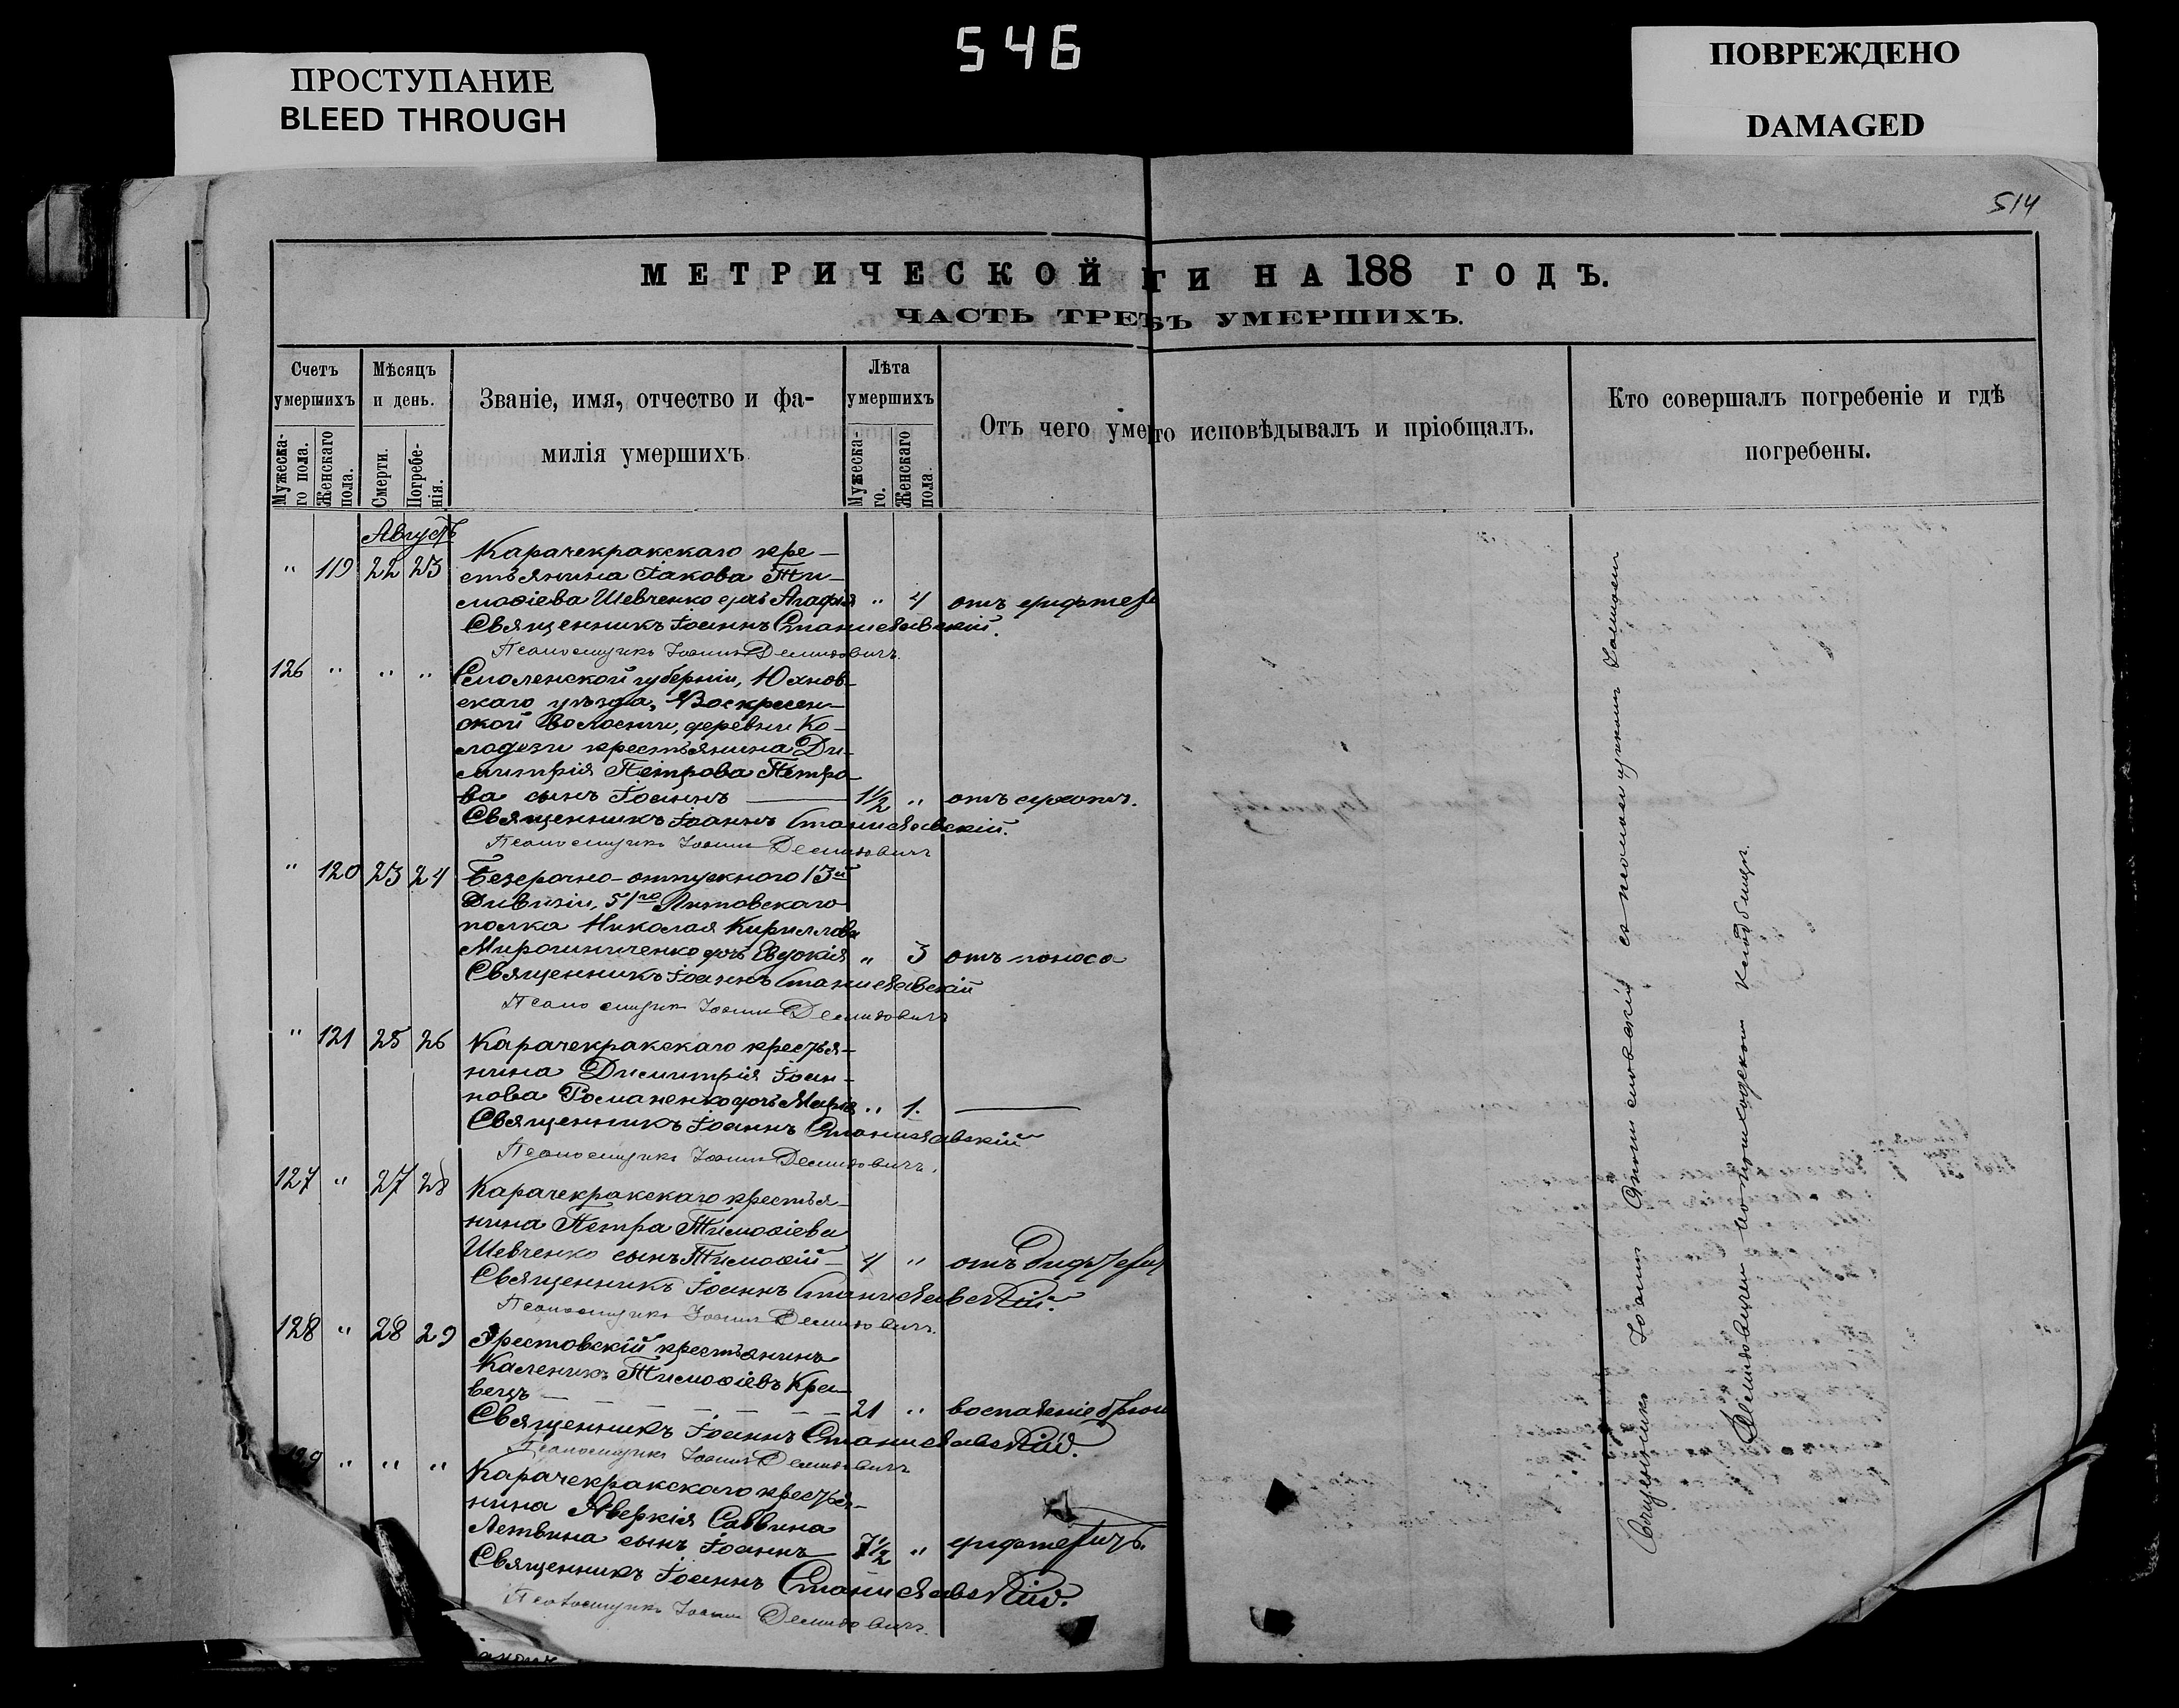 546
ПРОСТУПАНИЕ
BLEED THROUGH
ПОВРЕЖДЕНО
DAMAGED
514
МЕТРИЧЕСКОЙ ГИ НА 188 ГОДЪ.
ЧАСТЬ ТРЕ Ъ УМЕРШИХЪ.
Счетъ умершихъ
Мужеска-го пола.
Женскаго пола.
Мѣсяцъ и день.
Смерти.
Погребе-нія.
Званіе, имя, отчество и фа-
милія умершихъ
Лѣта умершихъ
Мужеска-го.
Женскаго пола
Отъ чего уме то исповѣдывалъ и пріобщалъ.
Кто совершалъ погребеніе и гдѣ
погребены.
Августъ
" 119 22 23 Карачекракскаго кре-
стьянина Іакова Ти-
моѳіева Шевченко дчь Агафія " 4 отъ дифтери
Священникъ Іоаннъ Станиславскій.
Псаломщикъ Іоаннъ Демидовичъ.
126 " " " Смоленской губерніи, Юхнов-
скаго уѣзда, Воскресен-
ской Волости, деревни Ко-
лодези крестьянина Ди-
митрія Петрова Петро-
ва сынъ Іоаннъ — 1½ " отъ сухотъ.
Священникъ Іоаннъ Станиславскій.
Псаломщикъ Іоаннъ Демидовичъ
" 120 23 24 Безсрочно-отпускного 13й
Дивизіи, 51го Литовскаго
полка Николая Кириллова
Мирошниченко дчь Евдокія " 3 отъ поноса
Священникъ Іоаннъ Станиславскій
Псаломщикъ Іоаннъ Демидовичъ
" 121 25 26 Карачекракскаго крестья-
нина Димитрія Іоан-
нова Романенко дочь Марія " 1. —
Священникъ Іоаннъ Станиславскій
Псаломщикъ Іоаннъ Демидовичъ.
127 " 27 28 Карачекракскаго крестья-
нина Петра Тимоѳіева
Шевченко сынъ Тимоѳій — 4 " отъ дифтери
Священникъ Іоаннъ Станиславскій.
Псаломщикъ Іоаннъ Демидовичъ.
128 " 28 29 Эрестовскій крестьянинъ
Каленикъ Тимоѳіевъ Кра-
вецъ — 21 " воспаленіе брюш
Священникъ Іоаннъ Станиславскій.
Псаломщикъ Іоаннъ Демидовичъ
129 " " " Карачекракскаго крестья-
нина Аверкія Саввина
Летвина сынъ Іоаннъ 7½ " дифтеритъ.
Священникъ Іоаннъ Станиславскій.
Псаломщикъ Іоаннъ Демидовичъ.
Священникъ Іоаннъ Станиславскій съ псаломщикомъ Іоанномъ
Демидовичемъ на приходскомъ кладбищѣ.